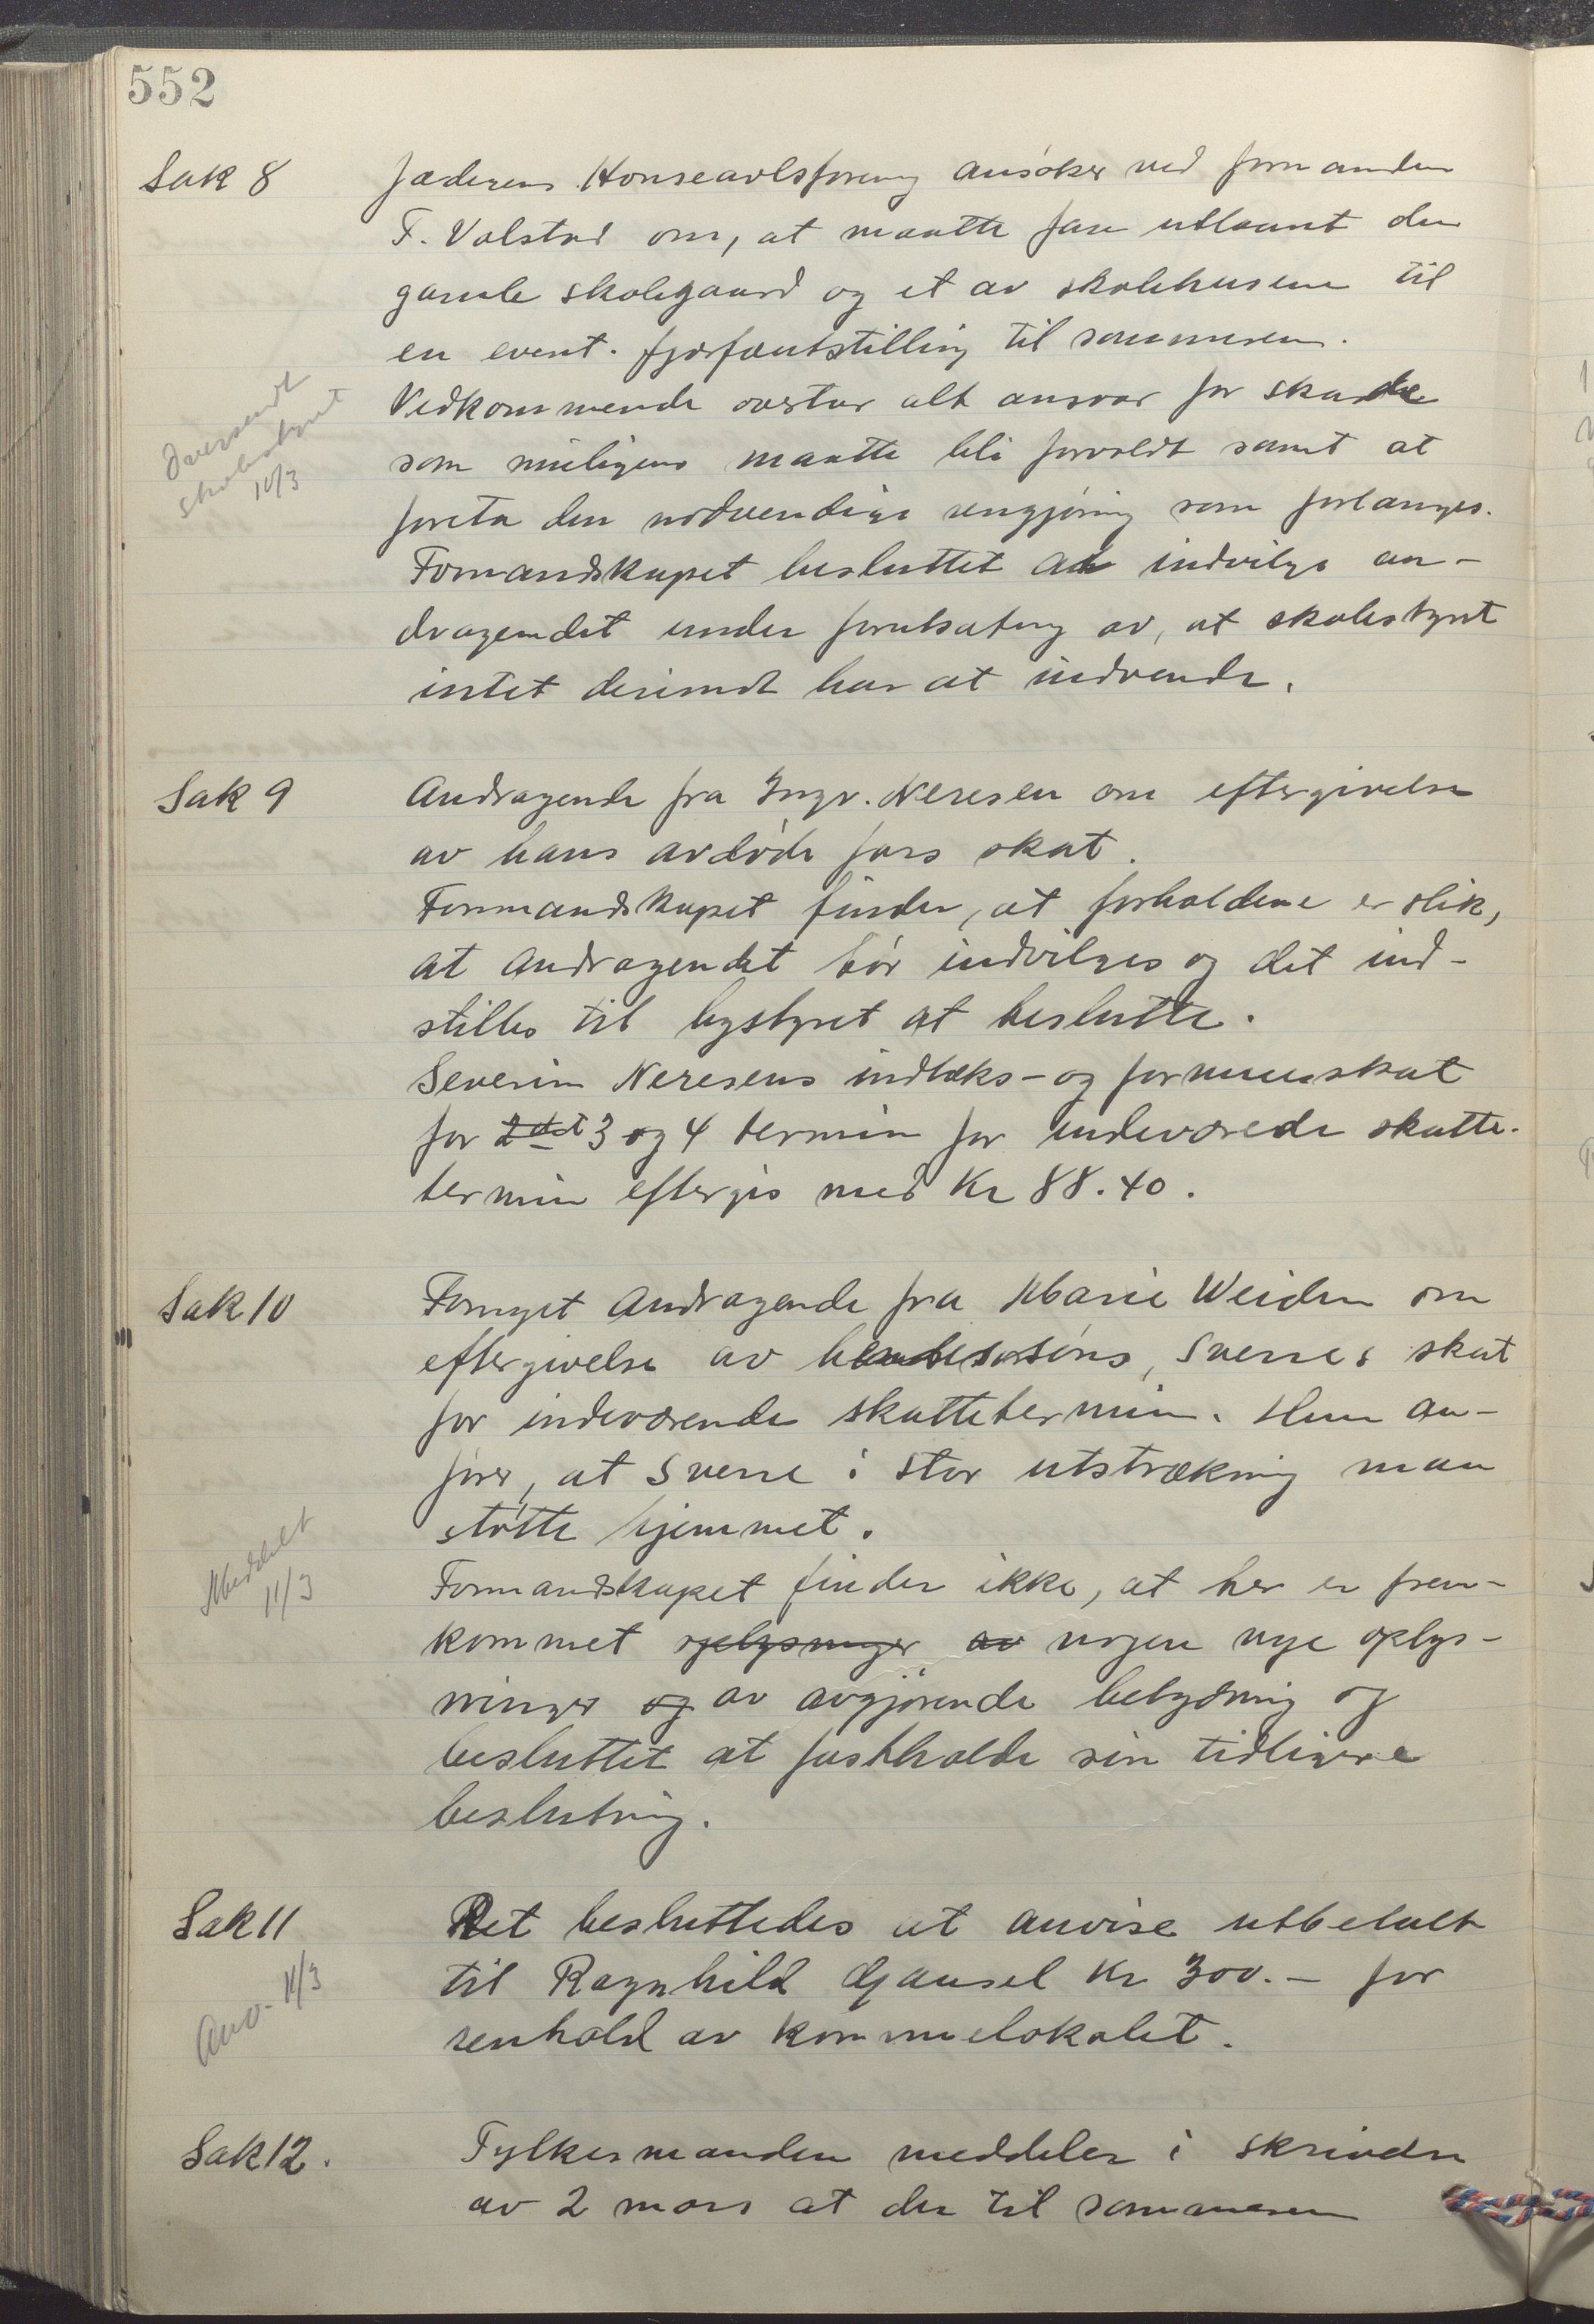 552
Sak 8
Jæderens Hønseavlsforening ansøker ved formanden
F. Valstad om, at maatte faa utlaant den
gamle skolegaard og et av skolehusene til
en event. fjærfæutstilling til sommeren.
Vedkommende overtar alt ansvar for skade
som muligens maatte bli forvoldt samt at
foreta den nødvendige rengjøring som forlanges.
Formandskapet besluttet at indvilge an-
dragendet under forutsætning av, at skolestyret
intet derimot har at indvende.
Oversendt
skolestyret
10/3
Sak 9
Andragende fra Ingv. Neresen om eftergivelse
av hans avdøde fars skat.
Formandskapet finder, at forholdene er slik,
at andragendet bør indvilges og det ind-
stilles til bystyret at beslutte.
Severin Neresens indtæks- og formuesskat
for 3 og 4 termin for indeværende skatte-
termin eftergis med Kr 88.40.
Sak 10
Fornyet andragende fra Marie Weiden om
eftergivelse av hendes søns, Sverres skat
for indeværende skattetermin. Hun an-
fører, at Sverre i stor utstrækning maa
støtte hjemmet.
Formandskapet finder ikke, at her er frem-
kommet oplysninger av nogen nye oplys-
ninger og av avgjørende betydning og
besluttet at fastholde sin tidligere
beslutning.
Meddelt
11/3
Sak 11
Det besluttedes at anvise utbetalt
til Ragnhild Gjausel Kr 300.- for
renhold av kommunelokalet.
Anv. 11/3
Sak 12.
Fylkesmanden meddeler i skrivelse
av 2 mars at der til sommeren